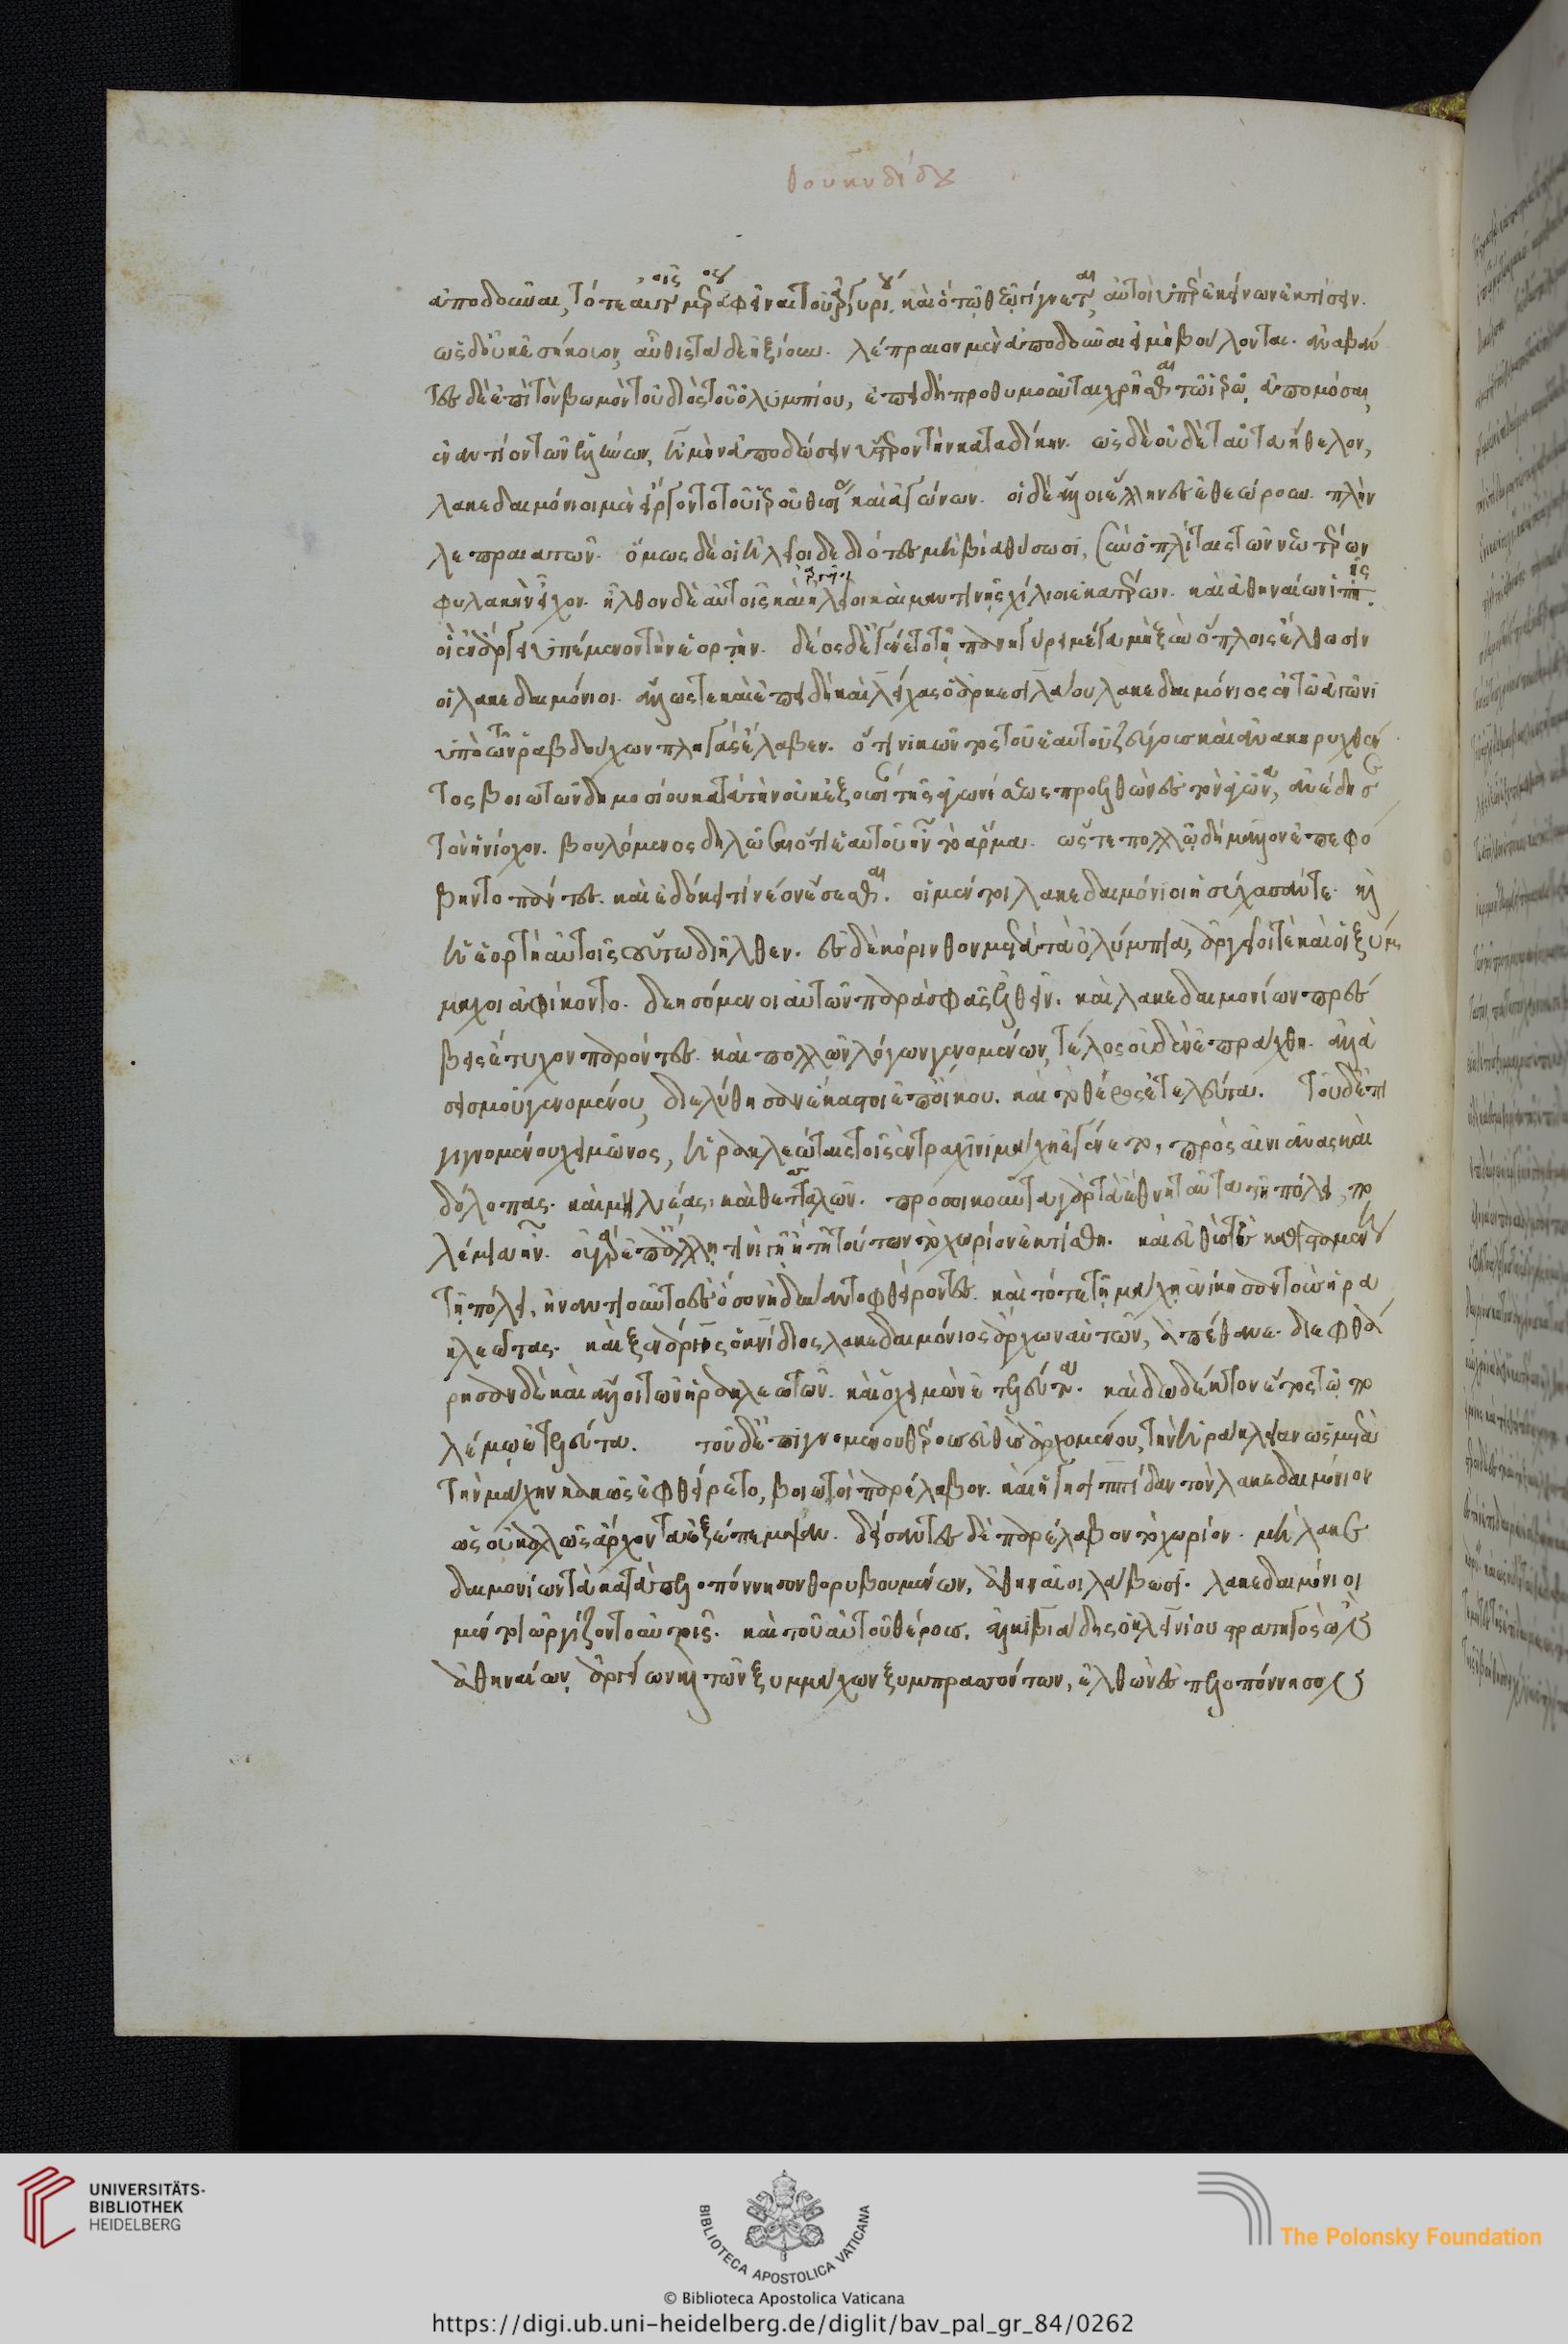 θουκυδίδου
ἀποδοῦναι, τό τε αὐτοῖς μέρος ἀφεῖναι τοῦ ἀργυρίου. καὶ ὃ τῷ θεῷ γίγνεται, αὐτοὶ ὑπὲρ ἐκείνων ἐκτίσειν.
ὡς δ' οὐκ ἐσήκουον, αὖθις τάδε ἠξίουν. λέπραιον μὲν ἀποδοῦναι εἰ μὴ βούλονται. ἀναβάν
τας δὲ ἐπὶ τὸν βωμὸν τοῦ διὸς τοῦ ὀλυμπίου, ἐπειδὴ προθυμοῦνται χρῆσθαι τῷ ἱερῷ, ἀπομόσαι,
ἐναντίον τῶν ἑλλήνων, ἦ μὴν ἀποδώσειν ὕστερον τὴν καταδίκην. ὡς δὲ οὐδὲ ταῦτα ἤθελον,
λακεδαιμόνιοι μὲν εἴργοντο τοῦ ἱεροῦ θυσίας καὶ ἀγώνων. οἱ δὲ ἄλλοι ἕλληνες ἐθεώρουν. πλὴν
λεπραιατῶν. ὅμως δὲ οἱ ἠλεῖοι δεδιότες μὴ βίᾳ θύσωσι, ξὺν ὁπλίταις τῶν νεωτέρων
φυλακὴν εἶχον. ἦλθον δὲ αὐτοῖς καὶ ἀργεῖοι καὶ μαντινῆς χίλιοι ἑκατέρων. καὶ ἀθηναίων ἱππῆς.
οἳ ἐν ἄργει ὑπέμενον τὴν ἑορτήν. δέος δ' ἐγένετο τῇ πανηγύρει μέγα μὴ ξὺν ὅπλοις ἔλθωσιν
οἱ λακεδαιμόνιοι. ἄλλως τε καὶ ἐπειδὴ καὶ λίχας ὁ ἀρκεσιλάου λακεδαιμόνιος ἐν τῷ ἀγῶνι
ὑπὸ τῶν ῥαβδούχων πληγὰς ἔλαβεν. ὅτι νικῶντος τοῦ ἑαυτοῦ ζεύγους καὶ ἀνακηρυχθέν
τος βοιωτῶν δημοσίου κατὰ τὴν οὐκ ἐξουσίαν τῆς ἀγωνίσεως προελθὼν ἐς τὸν ἀγῶνα, ἀνέδησε
τὸν ἡνίοχον. βουλόμενος δηλῶσαι ὅτι ἑαυτοῦ ἦν τὸ ἅρμα. ὥστε πολλῷ δὴ μᾶλλον ἐπεφό
βηντο πάντες. καὶ ἐδόκει τι νέον ἔσεσθαι. οἱ μέντοι λακεδαιμόνιοι ἡσύχασάν τε. καὶ
ἡ ἑορτὴ αὐτοῖς οὕτω διῆλθεν. ἐς δὲ κόρινθον μετὰ τὰ ὀλύμπια, ἀργεῖοί τε καὶ οἱ ξύμ
μαχοι ἀφίκοντο. δεησόμενοι αὐτῶν παρὰ σφᾶς ἐλθεῖν. καὶ λακεδαιμονίων πρέσ
βεις ἔτυχον παρόντες. καὶ πολλῶν λόγων γενομένων, τέλος οὐδὲν ἐπράχθη. ἀλλὰ
σεισμοῦ γενομένου, διελύθησαν ἕκαστοι ἐπ' οἴκου. καὶ τὸ θέρος ἐτελεύτα. τοῦ δ' ἐπι
γιγνομένου χειμῶνος, ἡρακλεώταις τοῖς ἐν τραχῖνι μάχη ἐγένετο, πρὸς αἰνιᾶνας καὶ
δόλοπας. καὶ μηλιέας, καὶ θετταλῶν. προσοικοῦντα γὰρ τὰ ἔθνη ταῦτα τῇ πόλει, πο
λέμια ἦν. οὐ γὰρ ἐπ' ἄλλῃ τινὶ γῇ ἢ τῇ τούτων τὸ χωρίον ἐκτίσθη. καὶ εὐθύς τε καθισταμένῃ
τῇ πόλει, ἠναντιοῦντο ἐς ὅσον ἠδύναντο φθείροντες. καὶ τότε τῇ μάχῃ ἐνίκησαν τοὺς ἡρα
κλεώτας. καὶ ξενάρης ὁ κνίδιος λακεδαιμόνιος ἄρχων αὐτῶν, ἀπέθανε. διεφθά
ρησαν δὲ καὶ ἄλλοι τῶν ἡρακλεωτῶν. καὶ ὁ χειμὼν ἐτελεύτα. καὶ δωδέκατον ἔτος τῷ πο
λέμῳ ἐτελεύτα. τοῦ δ' ἐπιγιγνομένου θέρους εὐθὺς ἀρχομένου, τὴν ἡράκλειαν ὡς μετὰ
τὴν μάχην κακῶς ἐφθείρετο, βοιωτοὶ παρέλαβον. καὶ ἡγησιππίδαν τὸν λακεδαιμόνιον
ὡς οὐ καλῶς ἄρχοντα ἐξέπεμψαν. δείσαντες δὲ παρέλαβον τὸ χωρίον. μὴ λακε
δαιμονίων τὰ κατὰ πελοπόννησον θορυβουμένων, ἀθηναῖοι λάβωσι. λακεδαιμόνιοι
μέντοι ὠργίζοντο αὐτοῖς. καὶ τοῦ αὐτοῦ θέρους, ἀλκιβιάδης ὁ κλεινίου στρατηγὸς ὢν
ἀθηναίων, ἀργείων καὶ τῶν ξυμμάχων ξυμπρασσόντων, ἐλθὼν ἐς πελοπόννησον
UNIVERSITÄTS-
BIBLIOTHEK
HEIDELBERG
BIBLIOTECA APOSTOLICA VATICANA
The Polonsky Foundation
© Biblioteca Apostolica Vaticana
https://digi.ub.uni-heidelberg.de/diglit/bav_pal_gr_84/0262